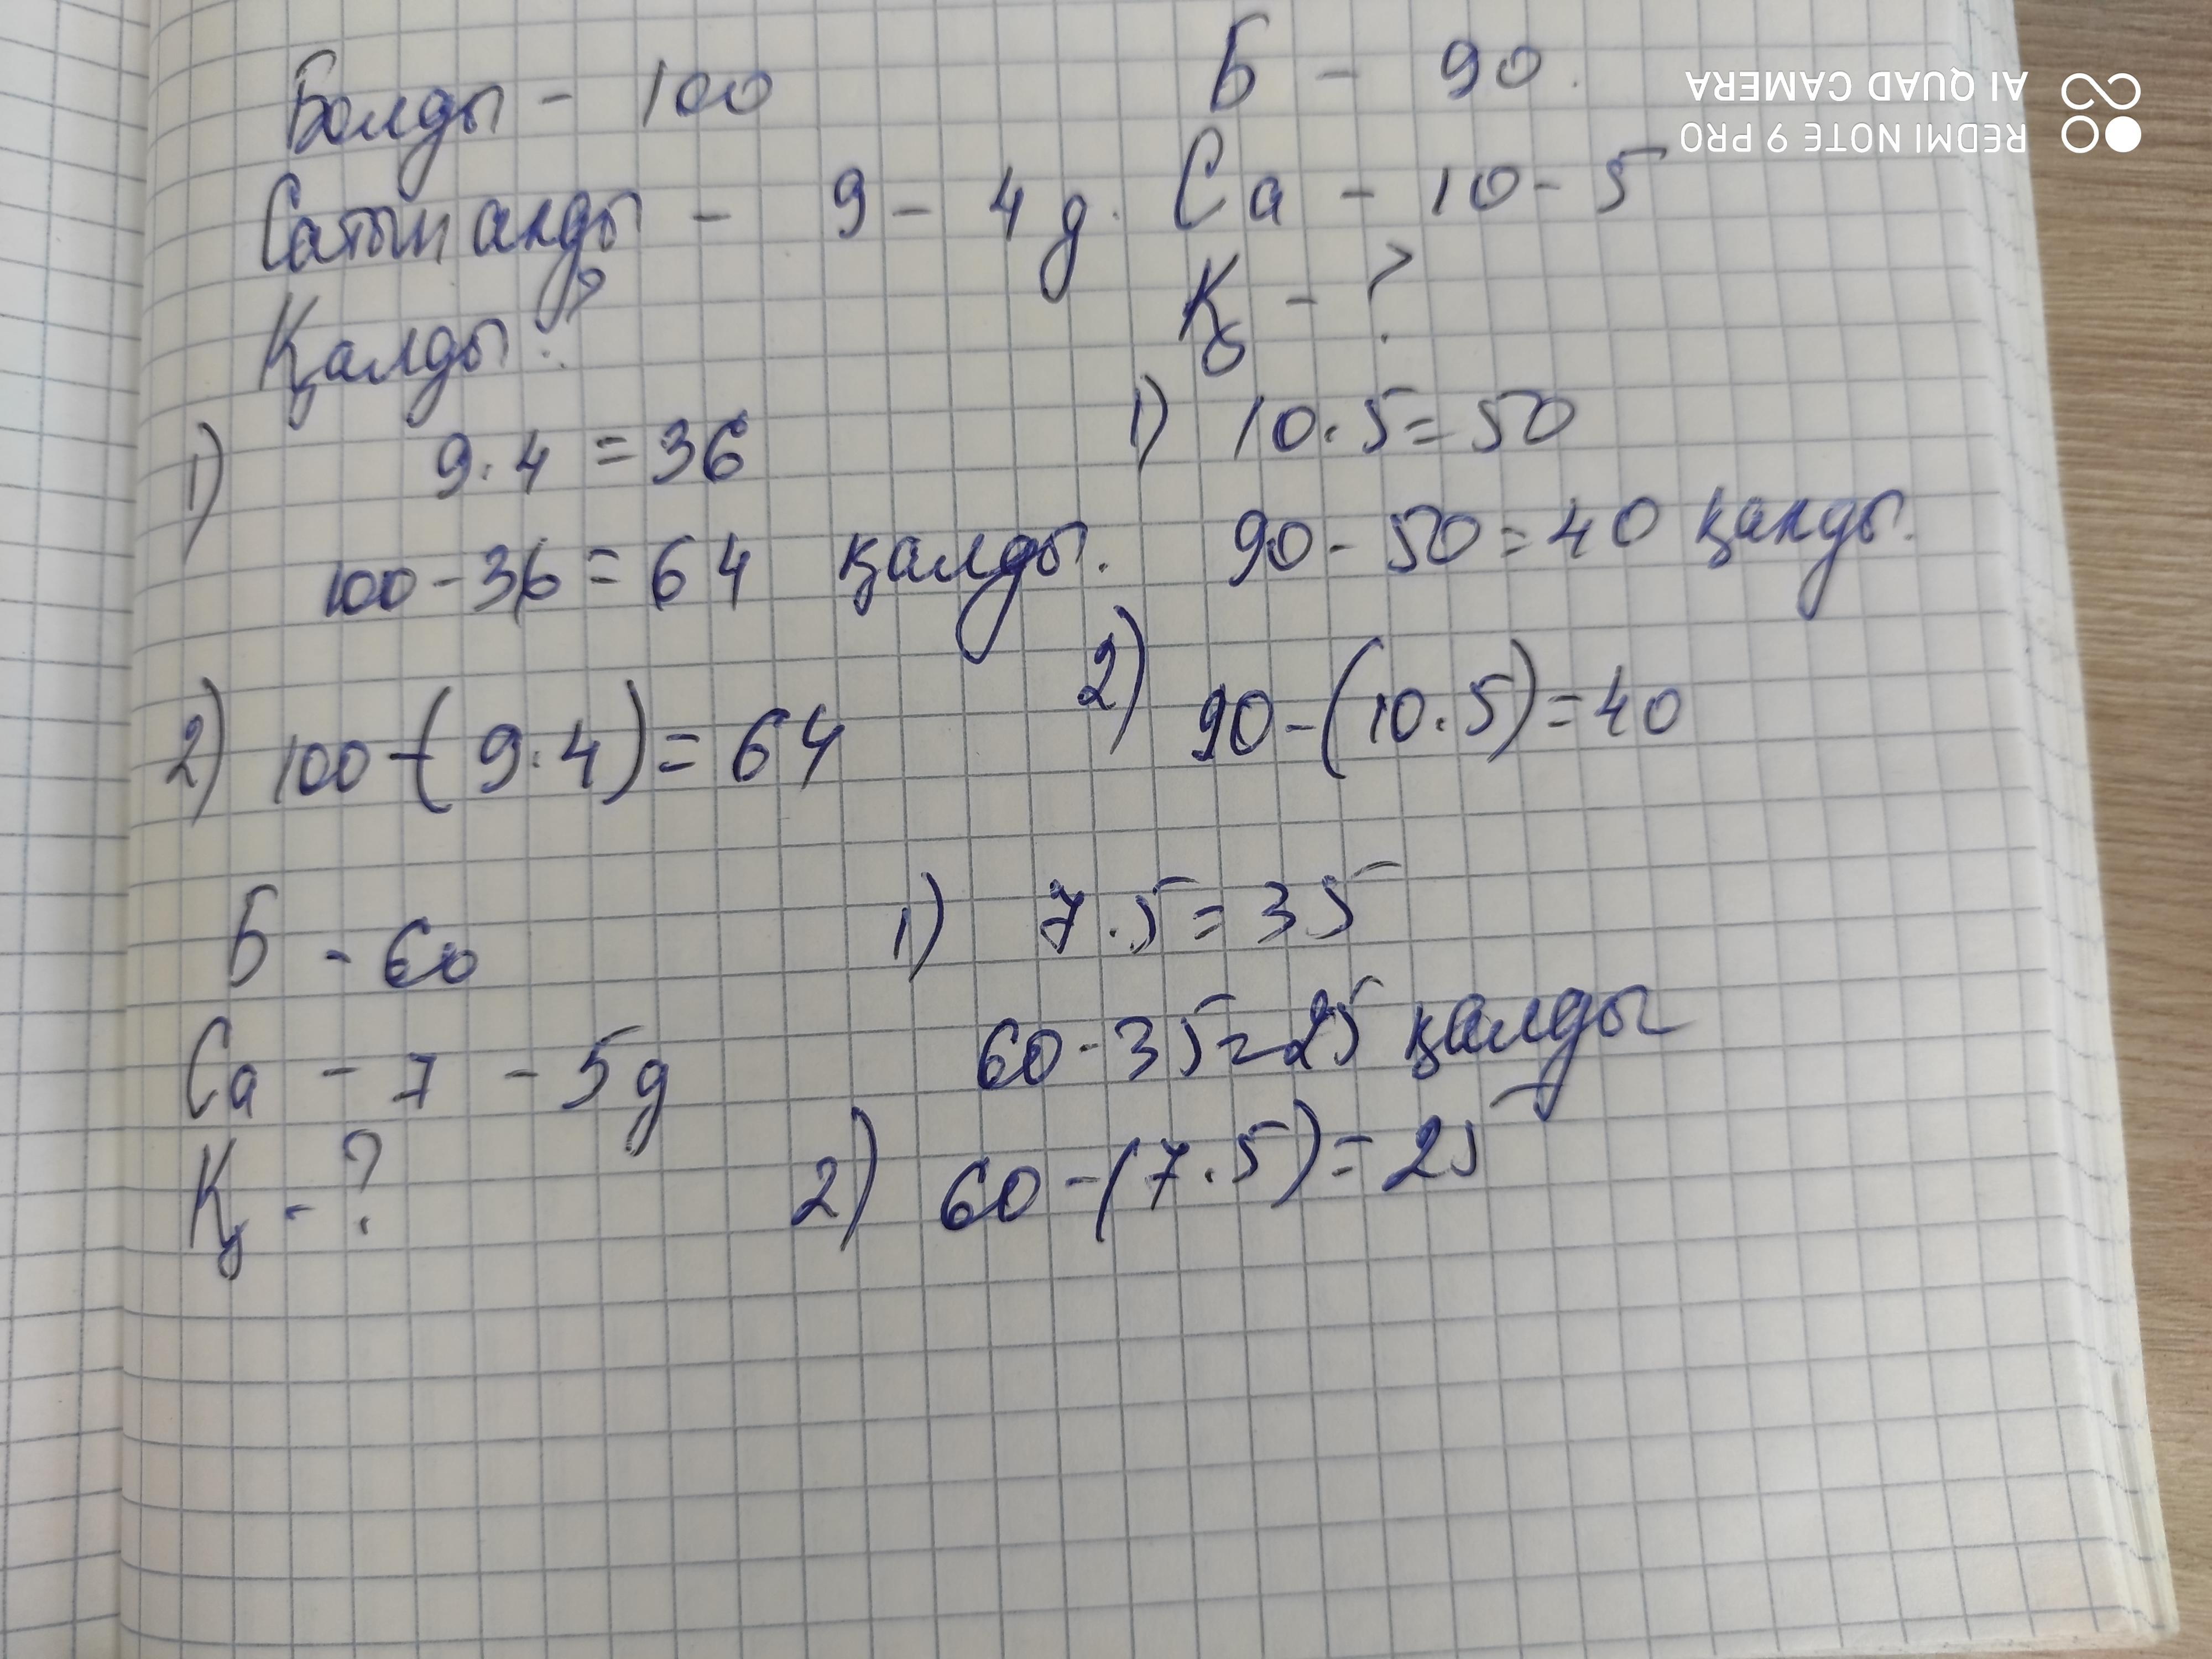 Болды - 100
Сатып алды - 9 - 4 д.
Қалды ?
1) 9 · 4 = 36
100 - 36 = 64 қалды.
2) 100 - (9 · 4) = 64
Б - 90.
Са - 10 - 5
Қ - ?
1) 10 · 5 = 50
90 - 50 = 40 қалды.
2) 90 - (10 · 5) = 40
Б - 60
Са - 7 - 5 д
Қ - ?
1) 7 · 5 = 35
60 - 35 = 25 қалды
2) 60 - (7 · 5) = 25
REDMI NOTE 9 PRO
AI QUAD CAMERA